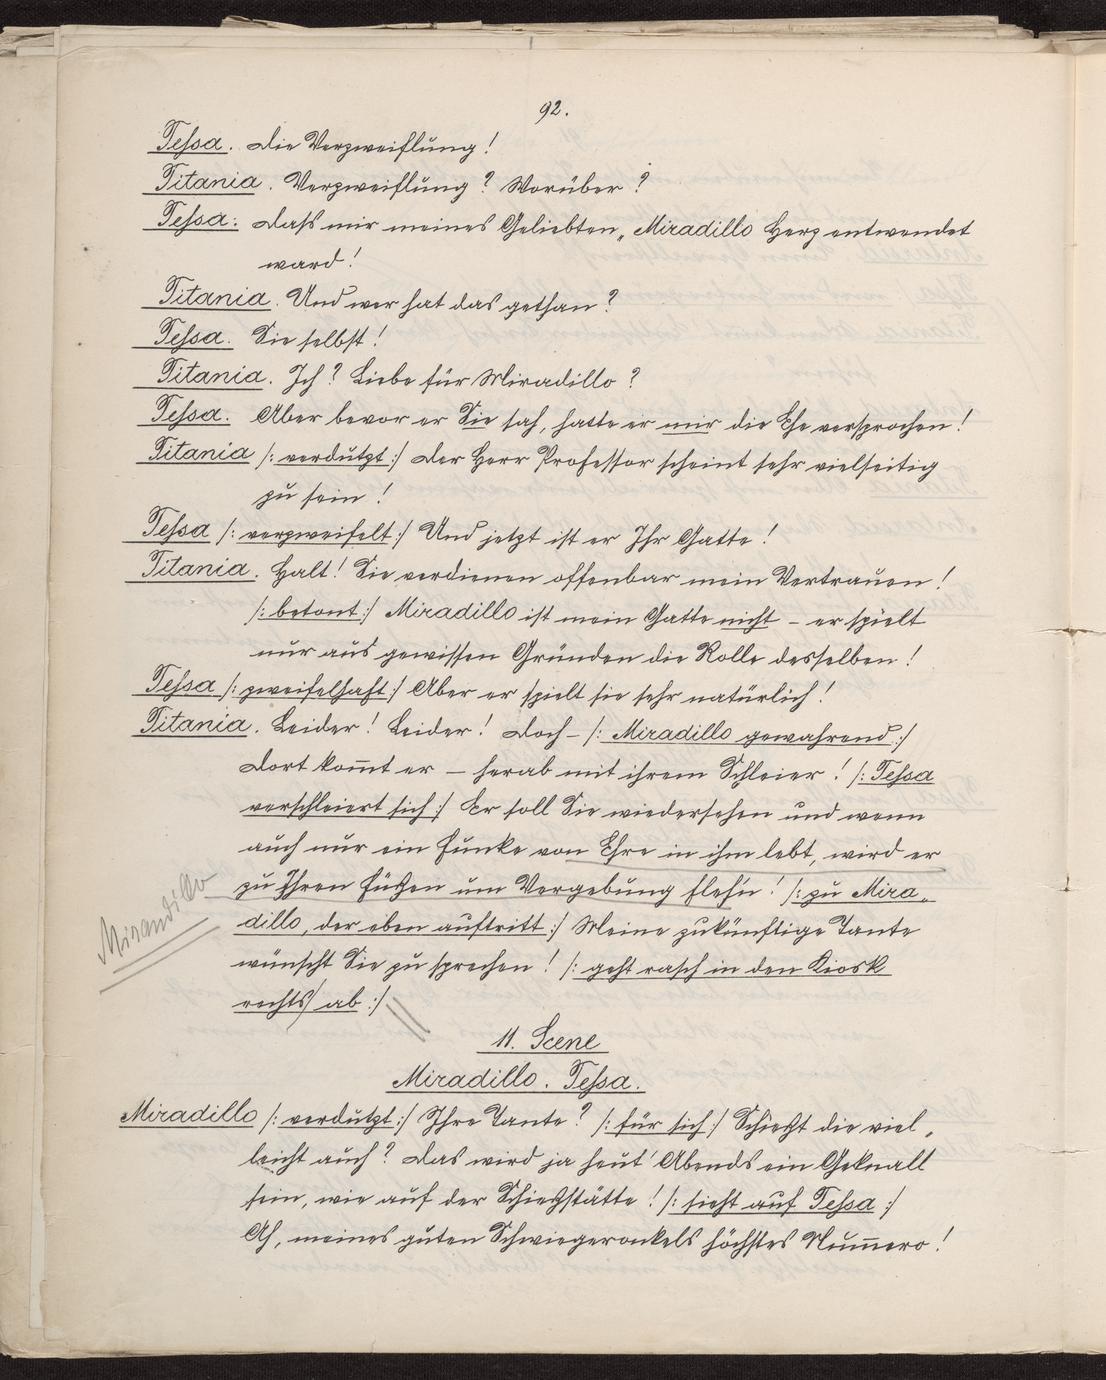 92.
Tessa. Die Verzweiflung!
Titania. Verzweiflung? Worüber?
Tessa: Dass mir meines Geliebten, Miradillo Herz entwendet
ward!
Titania. Und wer hat das gethan?
Tessa. Sie selbst!
Titania. Ich? Liebe für Miradillo?
Tessa: Aber bevor er Sie sah, hatte er mir die Ehe versprochen!
Titania /: verdutzt :/ Der Herr Professor scheint sehr vielseitig
zu sein!
Tessa /: verzweifelt :/ Und jetzt ist er Ihr Gatte!
Titania. Halt! Sie verdienen offenbar mein Vertrauen!
/: betont :/ Miradillo ist mein Gatte nicht – er spielt
nur aus gewissen Gründen die Rolle desselben!
Tessa /: zweifelhaft :/ Aber er spielt sie sehr natürlich!
Titania. Leider! Leider! Doch – /: Miradillo gewahrend :/
Dort kom̄t er – herab mit ihrem Schleier! /: Tessa
verschleiert sich :/ Er soll Sie wiedersehen und wenn
auch nur ein Funke von Ehre in ihm lebt, wird er
zu Ihren Füßen um Vergebung fleh'n! /: zu Mira„
Mirandillo
dillo, der eben auftritt :/ Meine zukünftige Tante
wünscht Sie zu sprechen! /: geht rasch in den Kiosk
rechts/ ab :/
11. Scene
Miradillo. Tessa.
Miradillo /: verdutzt :/ Ihre Tante? /: für sich :/ Schießt die viel„
leicht auch? Das wird ja heut' Abends ein Geknall
sein, wie auf der Schießstätte! /: sieht auf Tessa :/
Ah, meines guten Schwiegeronkels höchstes Num̄ero!